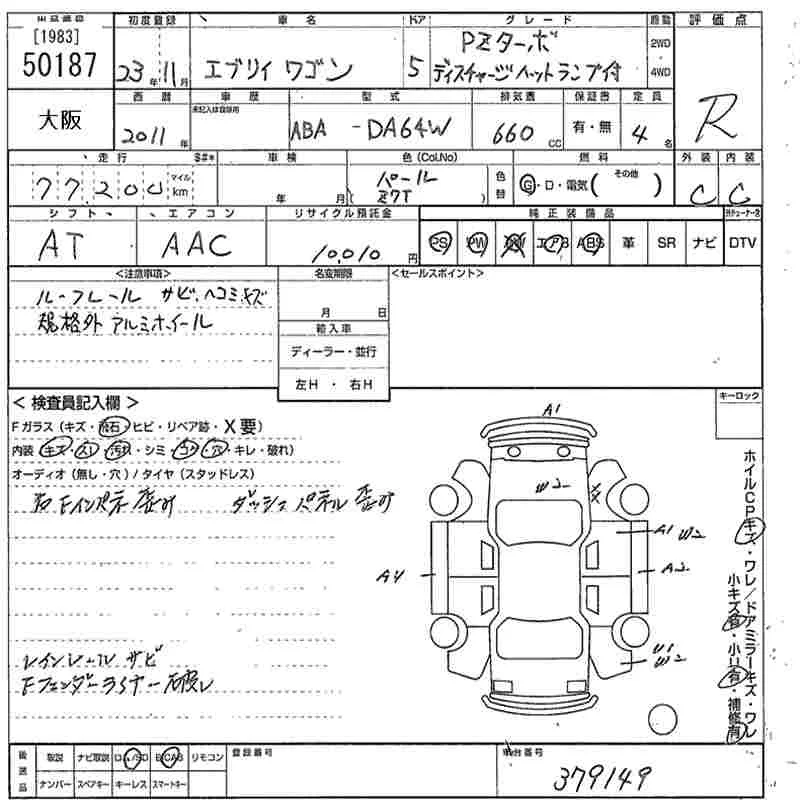 出品番号 初度登録 車名 ドア グレード 原動 評価点
[1983]
50187 23年11月 エブリイ ワゴン 5 PZターボ 2WD
ディスチャージヘッドランプ付 4WD
大阪 西暦 車歴 型式 排気量 保証書 定員 R
未記入は自家用
2011年 ABA -DA64W 660 CC 有・無 4名
走行 S#* 車検 色(Col.No) 燃料 外装 内装
77,200 マイル km 年 月 パール ( Z7T ) 色替 G・D・電気( その他 ) C C
シフト エアコン リサイクル預託金 純正装備品
AT AAC 10,010円 PS PW AW エアB ABS 革 SR ナビ DTV
<注意事項> 名変期限 <セールスポイント>
ルーフレール サビ、ヘコミ、キズ 月 日
規格外 アルミホイール 輸入車
ディーラー・並行
左H ・ 右H
< 検査員記入欄 > キーロック
Fガラス (キズ・飛石・ヒビ・リペア跡・X要)
内装 (キズ・スリ・汚れ・シミ・コゲ・穴・キレ・破れ)
オーディオ (無し・穴) / タイヤ (スタッドレス)
右Fインパネ 歪み ダッシュパネル 歪み
A1
W2
XX
A1 W2
A4
A2
U1
W2
レインレール サビ
Fフェンダーライナー破レ
ホイルCPキズ・ワレ/ドアミラーキズ・ワレ
小キズ有・小U有・補修有
後送品 取説 ナビ取説 ロム/SD BCAS リモコン 登録番号 車台番号
ナンバー スペアキー キーレス スマートキー 379149